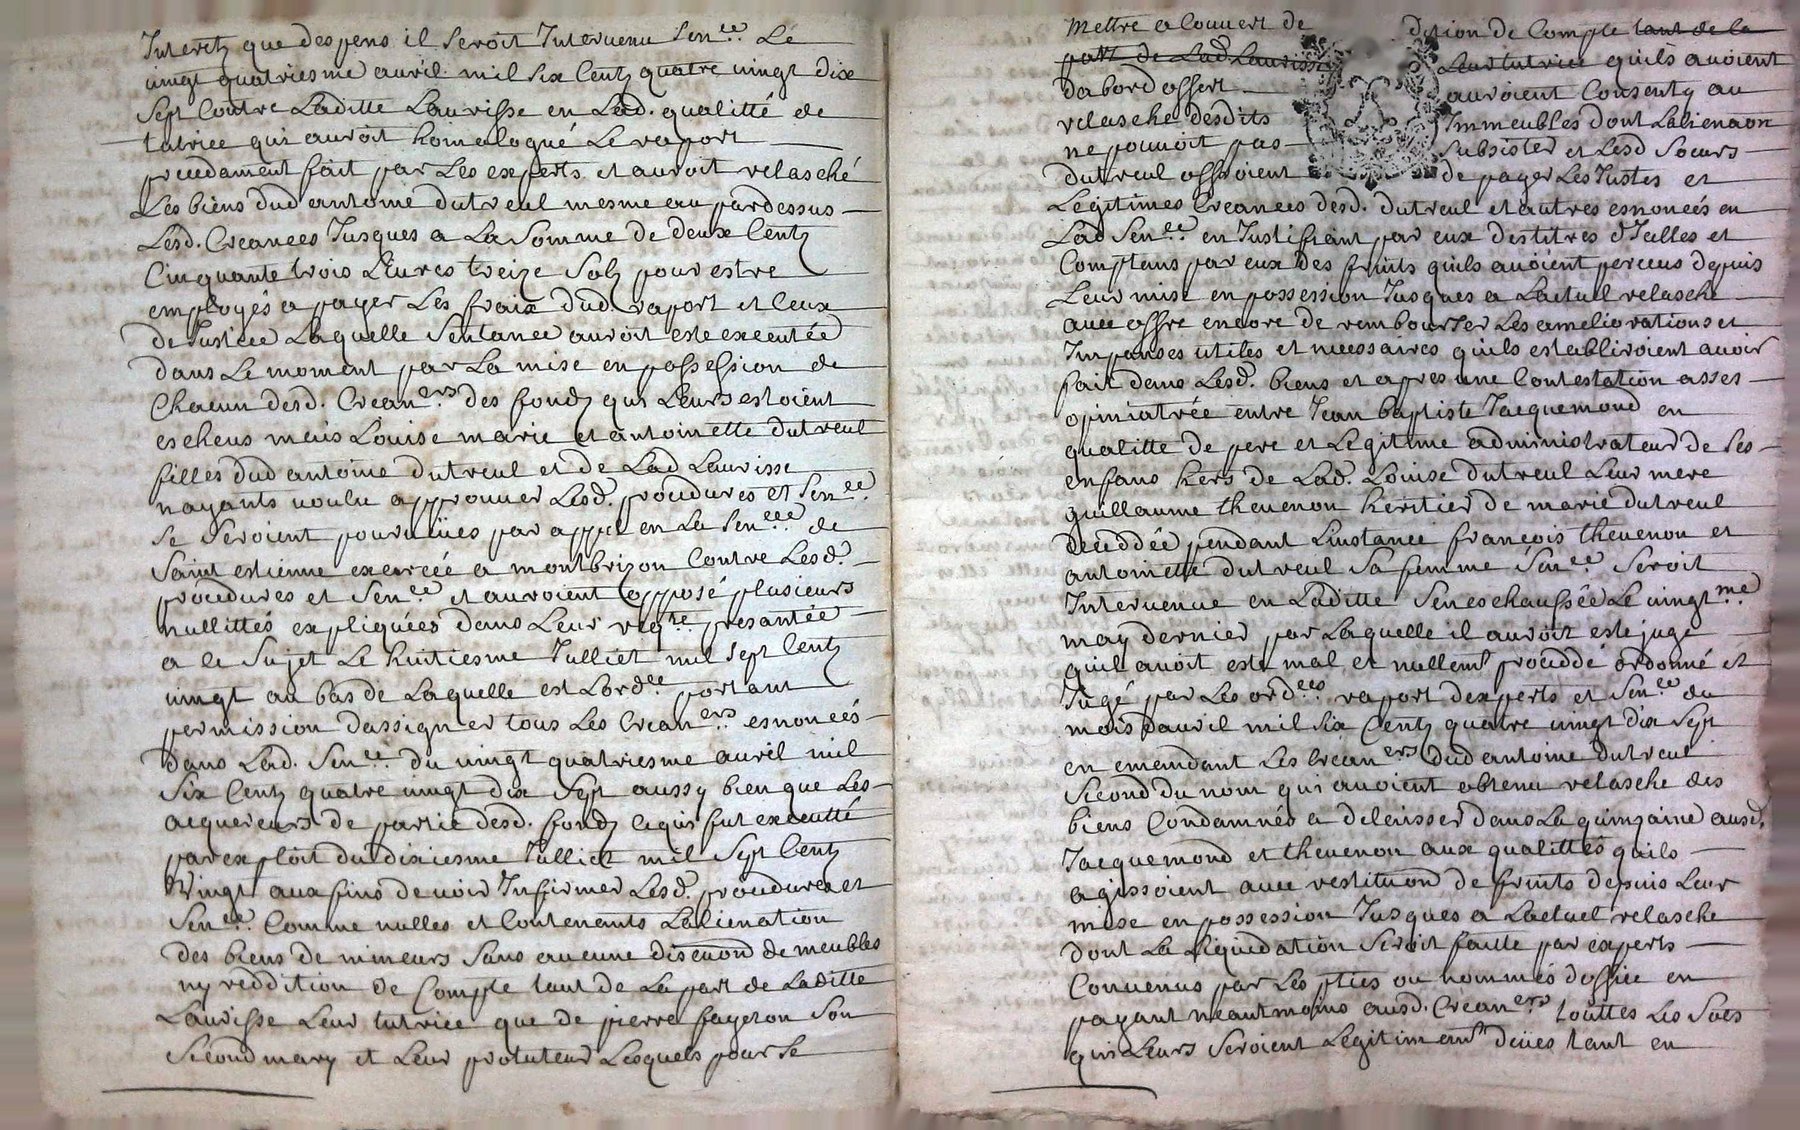 Interetz que despens il seroit Intervenu Sen.ce Le
vingt quatriesme avril mil six Centz quatre vingt dix
Sept Contre Laditte Laurisse en Lad. qualitté de
tutrice qui auroit homologué Le raport
precedament fait par Les experts et auroit relasché
Les biens dud antoine dutreul mesme au pardessus
Lesd. Creances Jusques a La Somme de deux Centz
Cinquante trois Livres treize Solz pour estre
employés a payer Les fraix dud. raport et Ceux
de Justice Laquelle Sentance auroit este executée
dans Le moment par La mise en possession de
Chacun desd. Crean.ers des fondz qui Leurs estoient
escheus mais Louise marie et antoinette dutreul
filles dud antoine dutreul et de Lad Laurisse
nayants voulu approuver Lesd. procedures et Sen.ce
se seroient pourvües par appel en La Sen.cée de
Saint estienne exercée a montbrizon Contre Lesd.
procedures et Sen.ce et auroient opposé plusieurs
nullittés expliquées dans Leur reqte presantée
a ce Sujet Le huitiesme Julliet mil sept Centz
vingt au bas de Laquelle est Lord.ce portant
permission dassigner tous Les Crean.ers esnoncés
dans Lad. Sen.ce du vingt quatriesme avril mil
Six Centz quatre vingt dix Sept aussy bien que Les
acquereurs de partie desd. fondz ce qui fut executté
par exploit du dixiesme Julliet mil Sept Centz
Vingt aux fins de voir Infirmer Lesd. procedures et
Sen.ce Comme nulles et Contenants Lalienation
des biens de mineurs Sans aucune discuon de meubles
ny reddition de Compte tant de La part de Laditte
Laurisse Leur tutrice que de pierre fayeton Son
Second mary et Leur protuteur Lesquels pour Se
Mettre a Couvert de dition de Compte tant de la
part de Lad Laurisse Leur tutrice quils avoient
dabord offert auroient Consenty au
relasche desdits Immeubles dont Lalienaon
ne pouvoit pas Subsister et Lesd Soeurs
dutreul offroient de payer Les Justes et
Legitimes Creances desd. dutreul et autres esnoncés en
Lad Sen.ce en Justiffiant par eux des titres dIcelles et
Comptans par eux des fruits quils avoient perceus depuis
Leur mise en possession Jusques a Lactuel relasche
avec offre encore de rembourser Les ameliorations et
Impanses utiles et necessaires quils establiroient avoir
fait dans Lesd. biens et apres une Contestation asses
opiniatrée entre Jean baptiste Jacquemond en
qualitte de pere et Legitime administrateur de Ses
enfans hers de Lad. Louise dutreul Leur mere
guillaume thevenon heritier de marie dutreul
deceddée pendant Linstance françois thevenon et
antoinette dutreul Sa femme Sen.ce Seroit
Intervenue en Laditte Seneschaussée Le vingt.me
may dernier par Laquelle il auroit este jugé
quil avoit este mal et nullemt proceddé ordonné et
Jugé par Les ord.ces raport dexperts et Sen.ce du
mois davril mil Six Centz quatre vingt dix Sept
en emendant Les Crean.ers dud antoine dutreul
Second du nom qui avoient obtenu relasche des
biens Condamnés a delaisser dans La quinzaine ausd.
Jacquemond et thevenon aux qualittés quils
agissoient avec restituon de fruits depuis Leur
mise en possession Jusques a Lactuel relasche
dont La Liquidation Seroit faitte par experts
Convenus par Les pties ou nommés doffice en
payant neantmoins ausd. Crean.ers touttes Les Soes
qui Leurs Seroient Legitimemt deües tant en